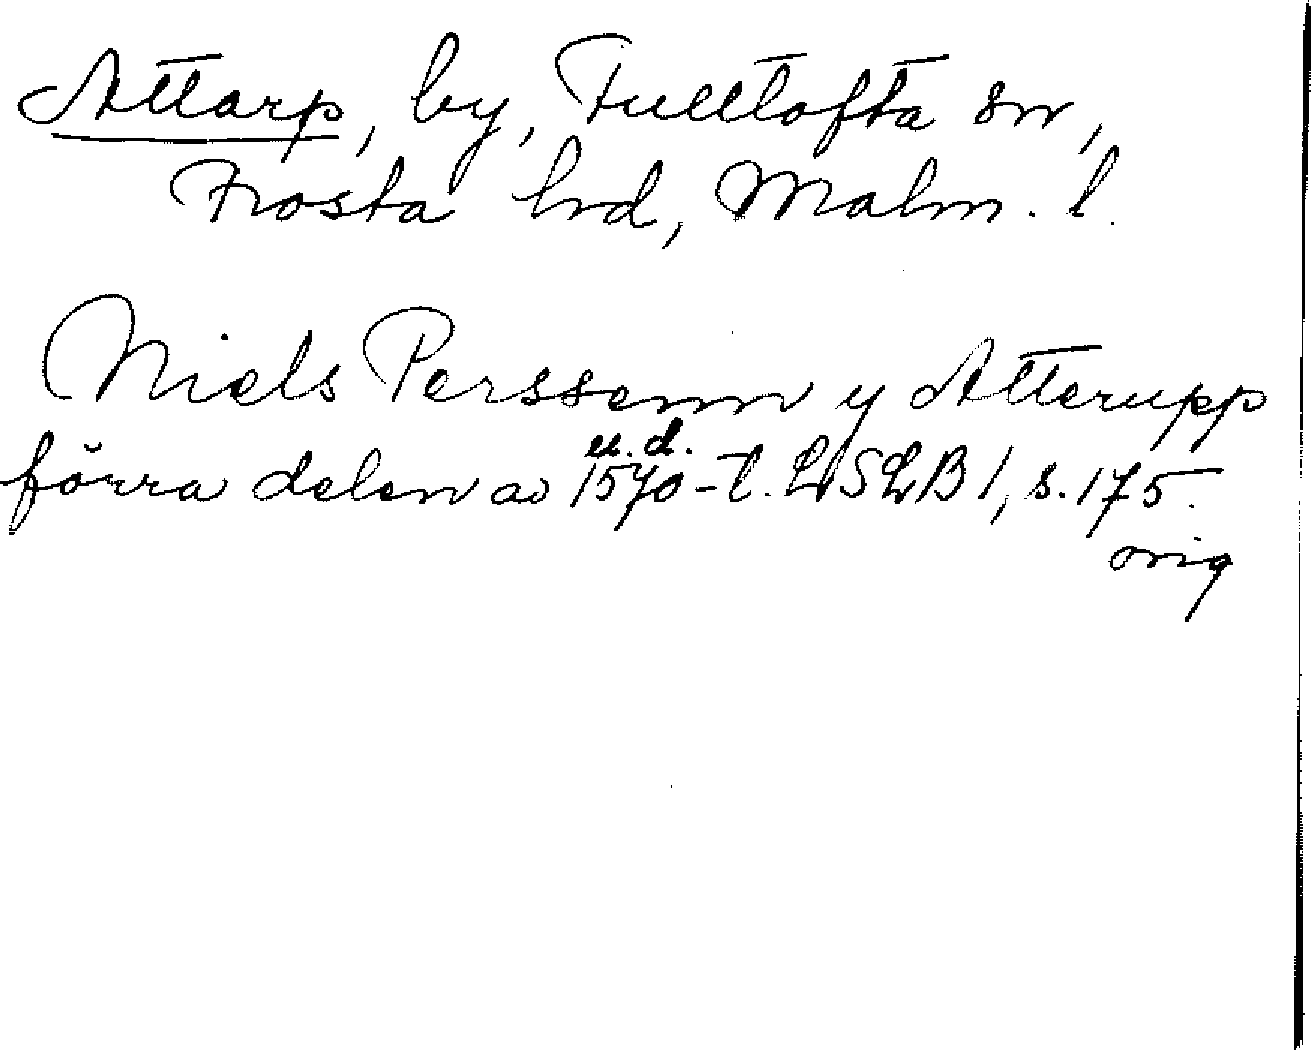 Attarp, by, Fulltofta sn,
Frosta hrd, Malm. l.
Niels Perssenn y Atterupp
u. d.
förra delen av 1570-t. LSLB 1, s. 175.
orig